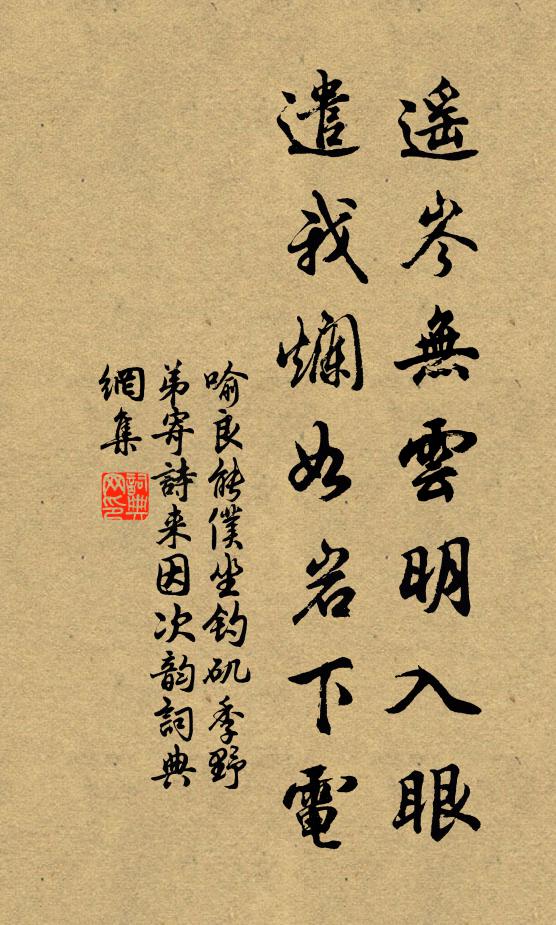 遥岑無雲明入眼
遣我爛如岩下電
喻良能僕坐釣矶季野
弟寄詩来因次韵詞典
網集
詞典
网印